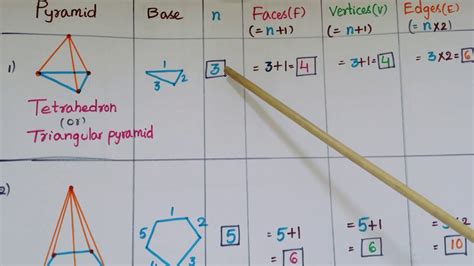 Pyramid Base n Faces(F) Vertices(V) Edges(E)
(=n+1) (=n+1) (=n×2)
1) 1 2 3 3 =3+1=4 =3+1=4 =3×2=6
Tetrahedron
(or)
Triangular pyramid
2) 1 2 3 5 5 =5+1 =5+1
=6 =6 =10